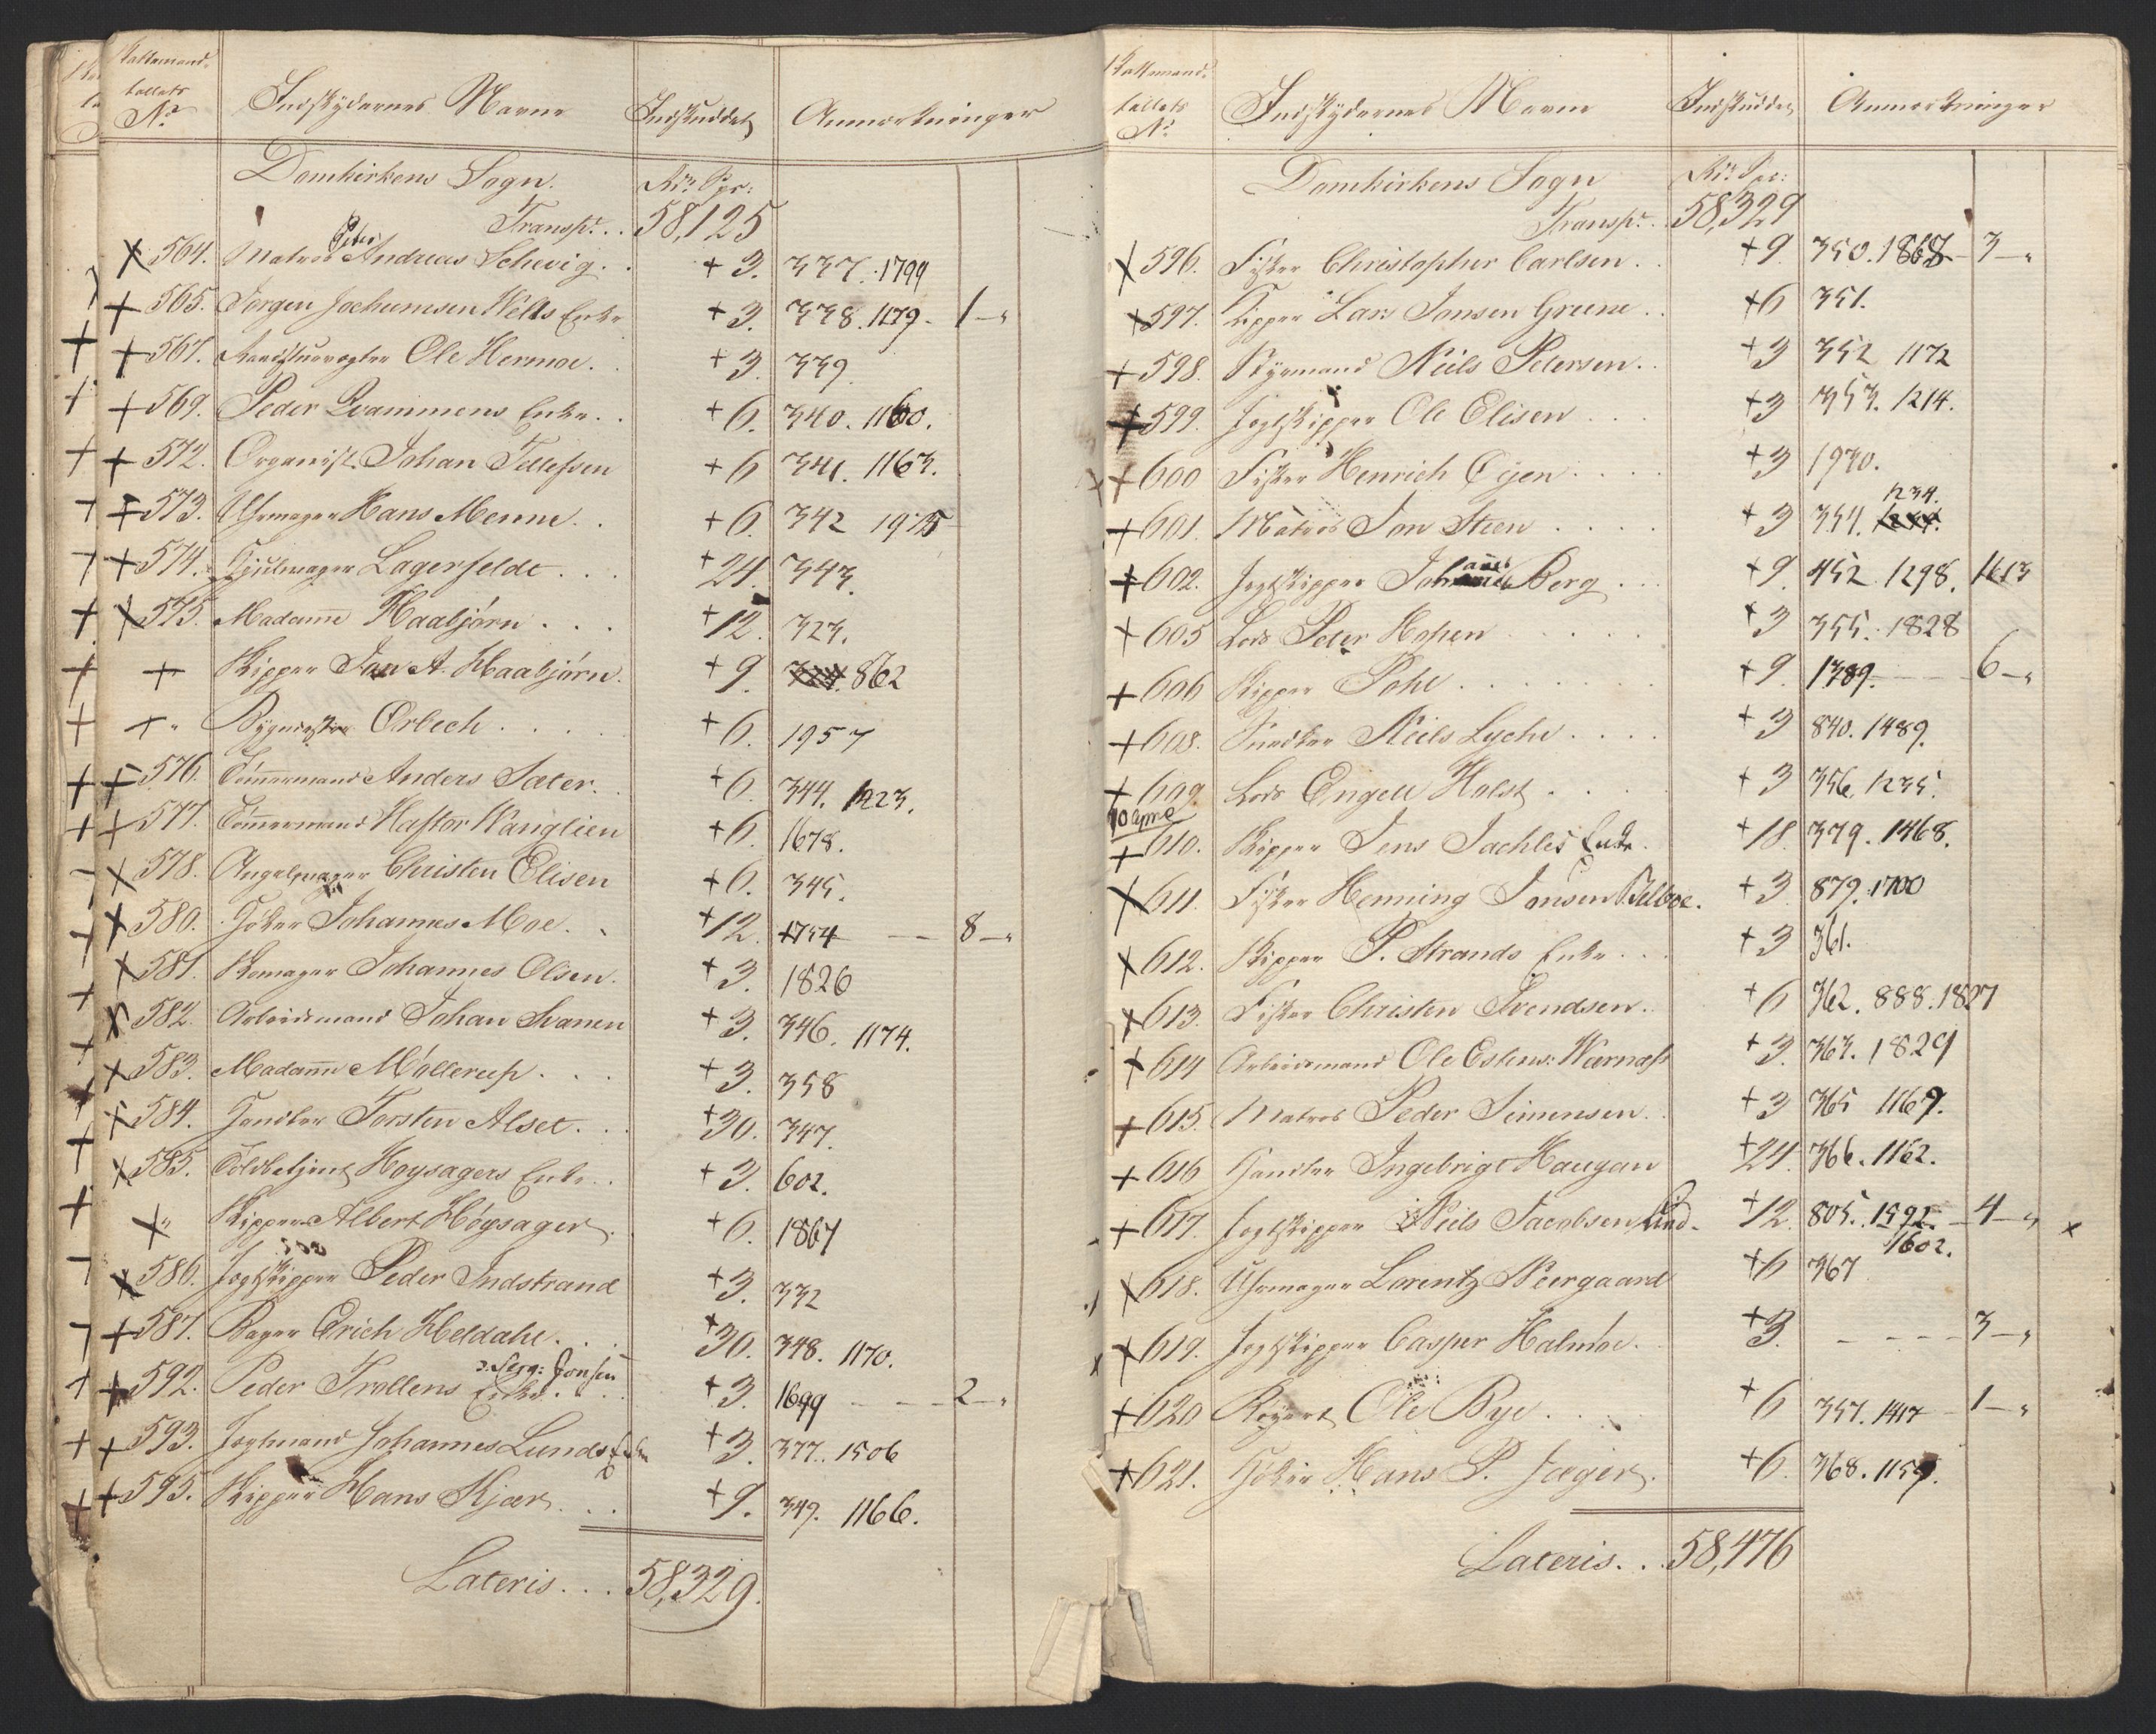 Skattemand-
tallets
No
Indskydernes Navne
Indskuddet
Anmærkninger
Domkirkens Sogn.
Rdr Spec:
Transpt. . 58,125
564. Matros Peter Andreas Schevig. . +3. 337. 1799
565. Jørgen Jochumsen Wells Enke +3. 338. 1179. 1 -
567. Raadstuevogter Ole Hermoe. . +3. 339.
569. Peder Qvammens Enke. . +6. 340. 1160.
572. Organist Johan Tellefsen +6 341. 1163.
573. Uhrmager Hans Menne. . +6. 342 1975
574. Hjulmager Lagerfeldt . . . +24. 343.
575. Madame Haabjørn . . . +12. 323.
+ Skipper Jan A. Haabjørn. +9. 862
+ " Bygmester Orbech . . . . +6. 1957
576. Tømmermand Anders Sæter. . +6. 344. 1223.
577. Tømmermand Haftor Wanglien +6. 1678.
578. Christen Elisen +6. 345.
580. Høker Johannes Moe. . +12. 1754 - - - 8 -
581. Skomager Johannes Olsen. +3. 1826
582. Arbeidsmand Johan Svanem +3. 346. 1174.
583. Madame Møllerup . . . +3. 358
584. Handler Torsten Alset. . . +30. 347.
585. Toldbetjent Høysagers Enke. . +3. 602.
" Skipper Albert Høysager. +6. 1867
586. Jagtskipper Peder Indstrand +3. 332
587. Bager Erich Heldahl. . . +30. 348. 1170.
592. Peder Trollens Enke. . . +3. 1699 - - - 2 -
593. Jagtmand Johannes Lunds Enke +3. 377. 1506
595. Skipper Hans Kjær. . . +9. 349. 1166.
Lateris. . . 58,329.
Skattemand-
tallets
No
Indskydernes Navne
Indskuddet
Anmærkninger
Domkirkens Sogn
Rdr Spec:
Transpt. . 58,329
596. Fisker Christopher Carlsen. . +9. 350. 1868 - 3 -
597. Skipper Lars Jonsen Greene . . +6 351.
598. Styrmand Niels Petersen. . +3 352 1172
599. Jagtskipper Ole Elisen . . . +3 353. 1214.
600 Fisker Henrich Eijen . . . . +3 1930.
601. Matros Jon Steen . . . . +3 354. 1234.
602. Jagtskipper Berg . . +9. 452 1298. 1613
605 Lods Peter Hopen . . . . . +3 355. 1828
606 Skipper Pohl . . . . . . +9. 1389. - - - 6 -
608. Snedker Niels Lyche . . . . +3 840. 1489.
609 Lods Engell Holst . . . . +3 356. 1235.
610. Skipper Jens Jachles Enke. +18. 379. 1468.
611. Fisker Henning Jonsen Selboe. +3. 879. 1700
612. Skipper P. Strands Enke . . . +3 361.
613. Fisker Christen Svendsen. . +6 362. 888. 1827
614 Arbeidsmand Ole Estens: Wærnæss +3. 363. 1829
615. Matros Peder Simensen. . +3 365 1169.
616 Handler Ingebrigt Haugan +24. 366. 1162.
617. Jagtskipper Niels Jacobsen Lind. +12. 805. 1592. - 4 - x
1602.
618. Uhrmager Lorentz Neergaard +6 367
619. Jagtskipper Casper Halmøe. . +3. - - - - 3 -
620 Ole Bye . . . +6 357. 1417 - 1 -
621. Høker Hans P. Jæger. . +6. 368. 1159.
Lateris. . . 58,476